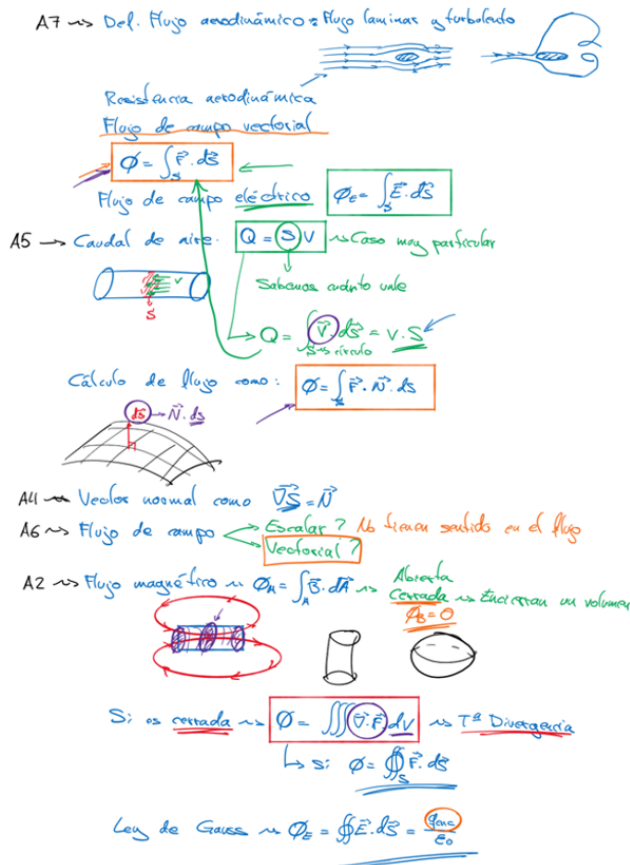 A7 ~> Def. Flujo aerodinámico: Flujo laminar y turbolento
Resistencia aerodinámica
Flujo de campo vectorial
Φ = ∫_S F⃗ · dS⃗
Flujo de campo eléctrico Φ_E = ∫_S E⃗ · dS⃗
A5 → Caudal de aire. Q = S V ~> Caso muy particular
Sabemos cuánto vale
V
S
Q = ∫_{S → círculo} V⃗ · dS⃗ = V · S
Cálculo de flujo como: Φ = ∫_S F⃗ · N⃗ · ds
dS⃗ → N⃗ · ds
A4 ~> Vector normal como ∇⃗S = N⃗
A6 ~> Flujo de campo Escalar? No tienen sentido en el flujo
Vectorial?
A2 ~> Flujo magnético ~> Φ_A = ∫_A B⃗ · dA⃗ ~> Abierta
Cerrada ~> Encierran un volumen
Φ_B = 0
Si es cerrada ~> Φ = ∭ ∇⃗ · F⃗ dV ~> Tª Divergencia
↳ Si Φ = ∯_S F⃗ · dS⃗
Ley de Gauss ~> Φ_E = ∯ E⃗ · dS⃗ = q_enc / ε₀